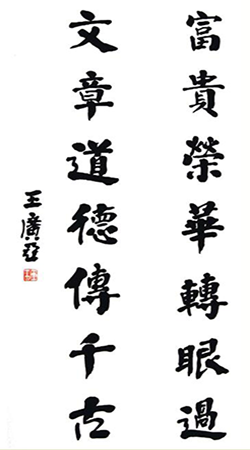 富貴榮華轉眼過
文章道德傳千古
王廣亞